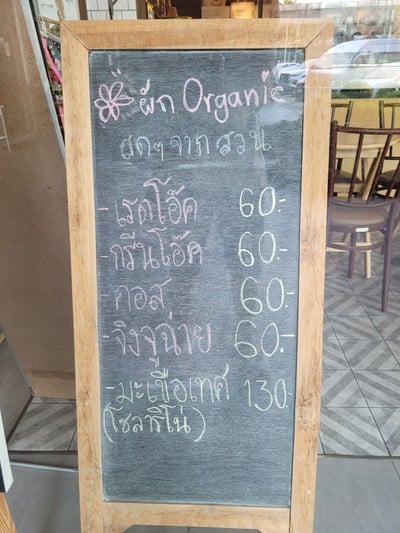 ผัก Organic
สดๆ จากสวน
- เรดโอ๊ค 60.-
- กรีนโอ๊ค 60.-
- คอส 60.-
- จิงจูฉ่าย 60.-
- มะเขือเทศ 130.
(โซลาริโน่)